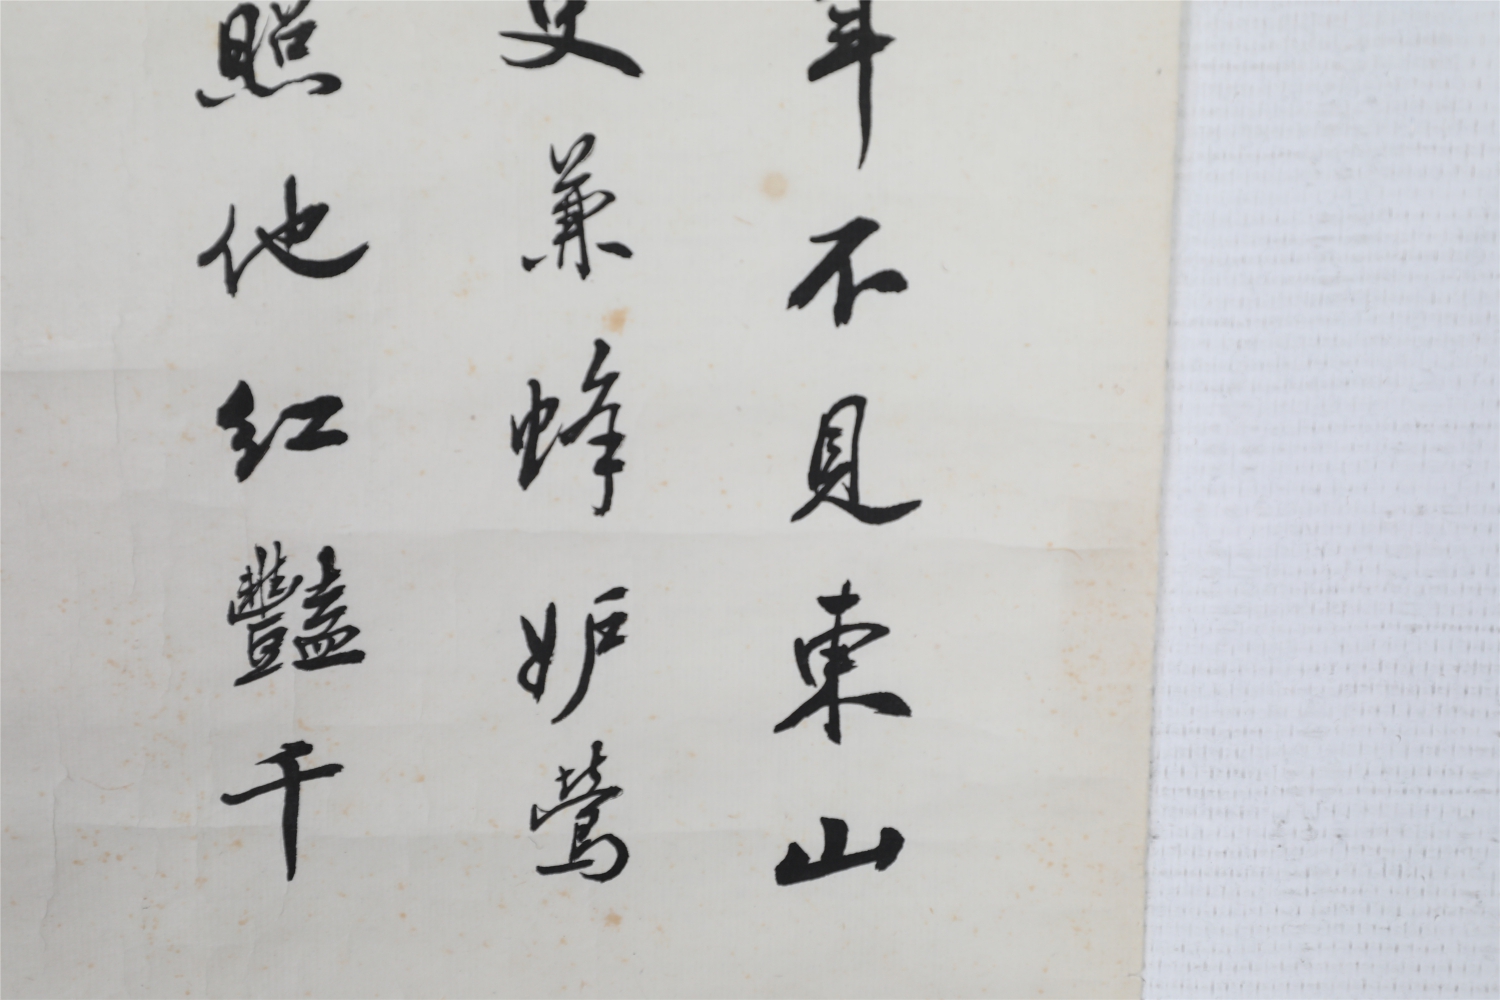 年不見東山
更兼蜂妒鶯
照他红豔千